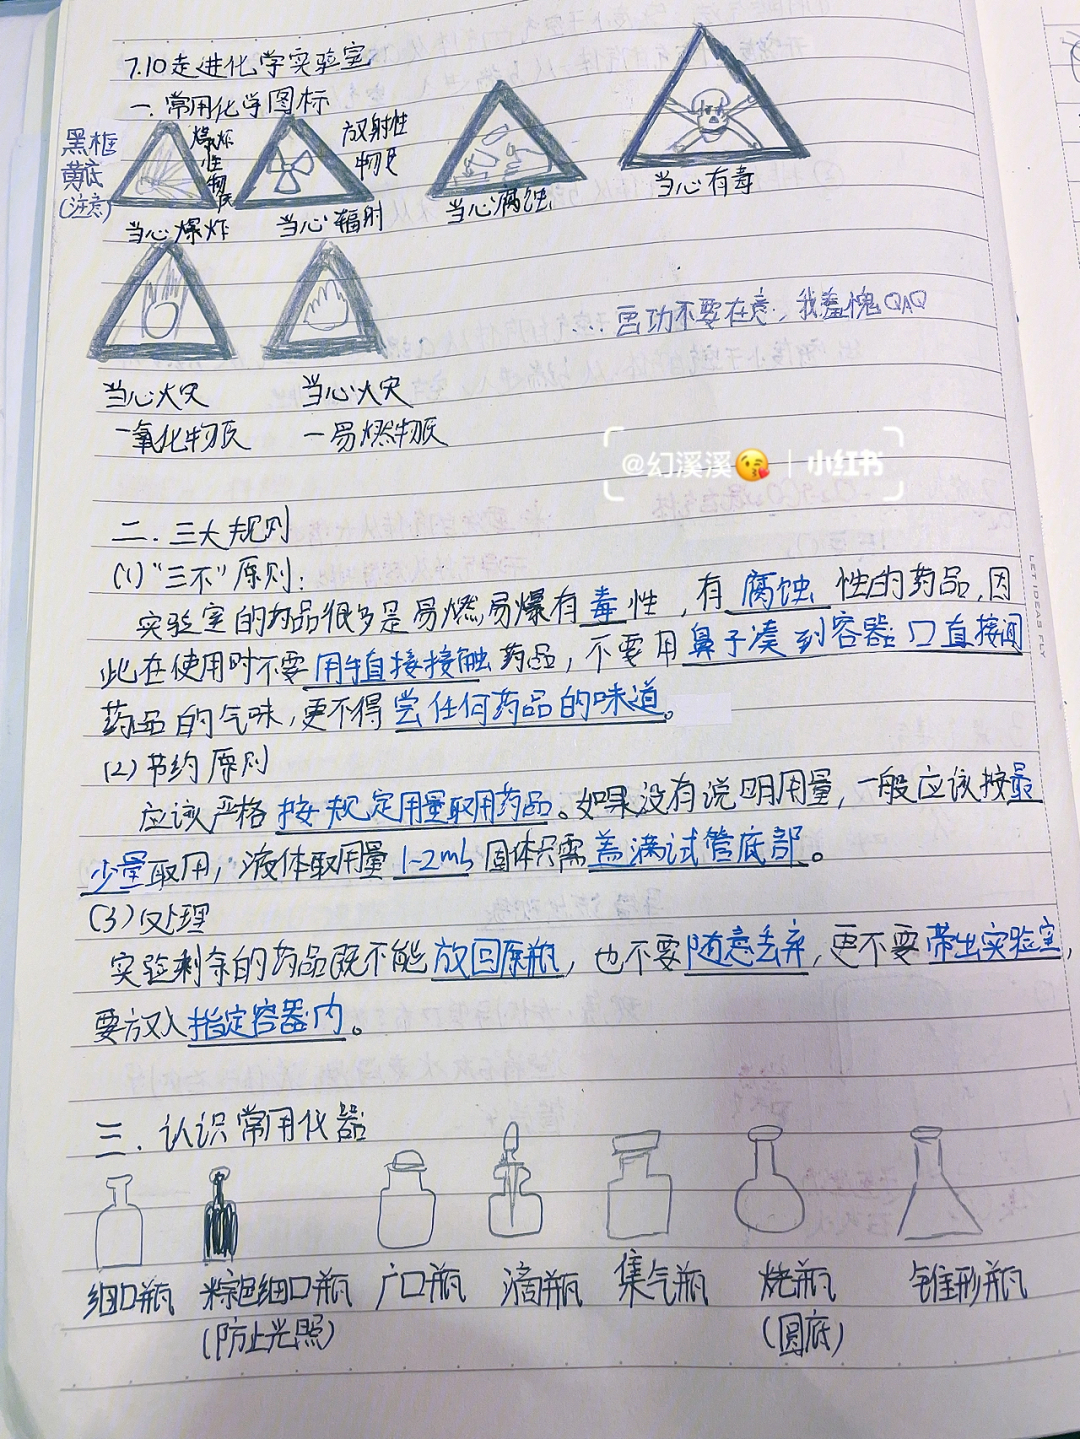 7.10走进化学实验室
一.常用化学图标
黑框
黄底
(注意)
爆炸性物质
放射性
物质
当心爆炸
当心辐射
当心腐蚀
当心有毒
画功不要在意,我羞愧QAQ
当心火灾
当心火灾
一氧化物质
一易燃物质
@幻溪溪😘 | 小红书
二.三大规则
(1)“三不”原则:
实验室的药品很多是易燃易爆有毒性,有腐蚀性的药品,因
此在使用时不要用手直接接触药品,不要用鼻子凑到容器口直接闻
药品的气味,更不得尝任何药品的味道。
(2)节约原则
应该严格按规定用量取用药品。如果没有说明用量,一般应该按最
少量取用,液体取用量1-2mL固体只需盖满试管底部。
(3)处理
实验剩余的药品既不能放回原瓶,也不要随意丢弃,更不要带出实验室,
要放入指定容器内。
三.认识常用仪器
细口瓶 棕色细口瓶 广口瓶 滴瓶 集气瓶 烧瓶 锥形瓶
(防止光照) (圆底)
LET IDEAS FLY